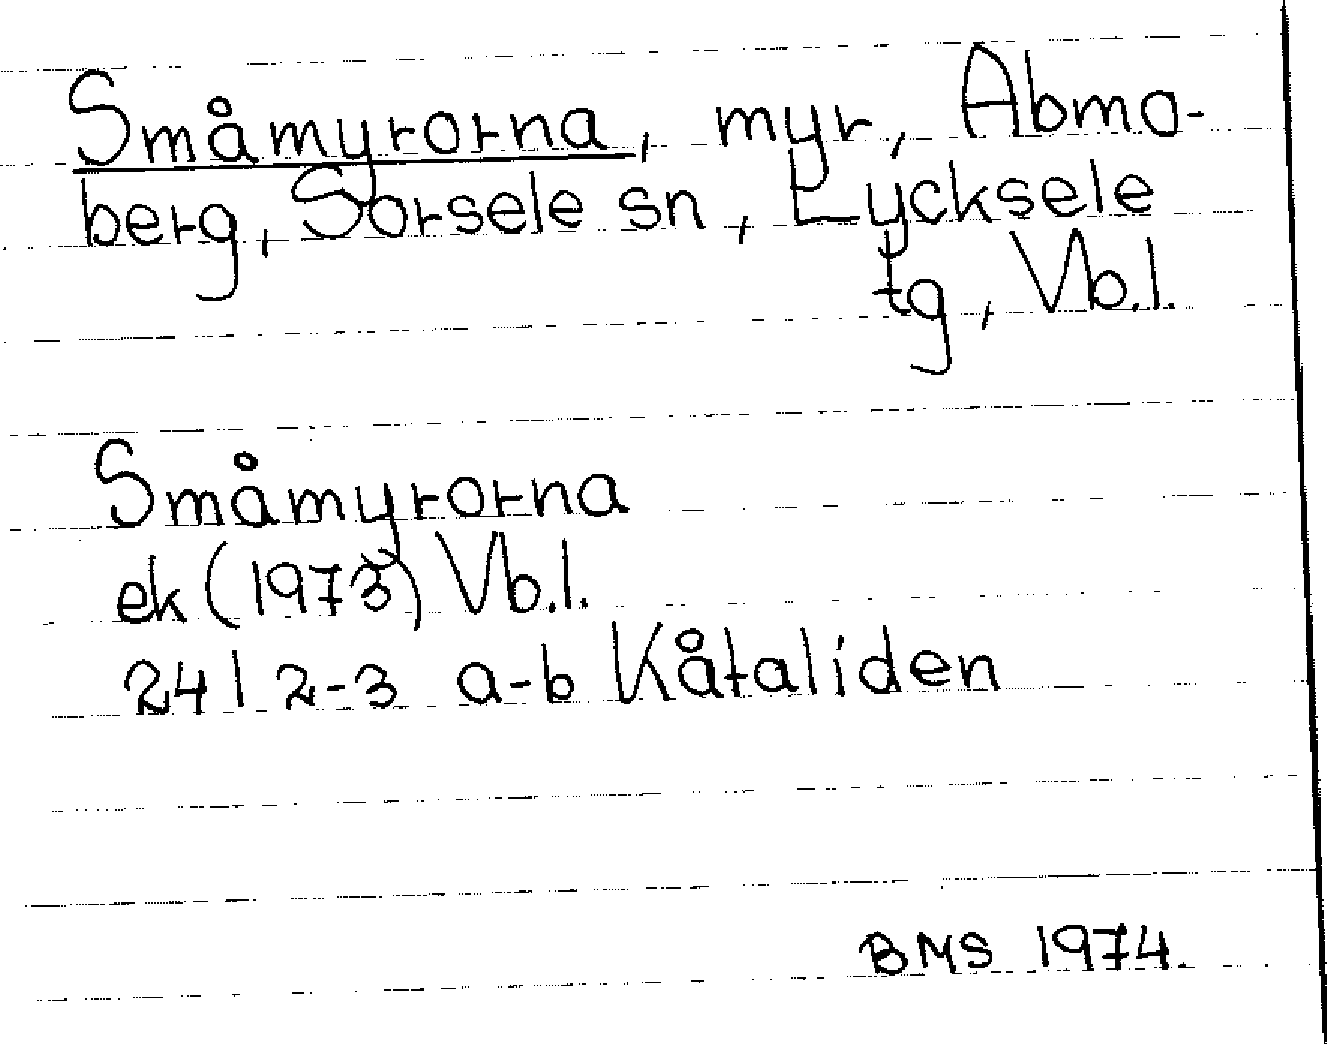 Småmyrorna, myr, Abmo-
berg, Sorsele sn, Lycksele
tg, Vb.l.
Småmyrorna
ek (1973) Vb.l.
24 I 2-3 a-b Kåtaliden
BMS 1974.